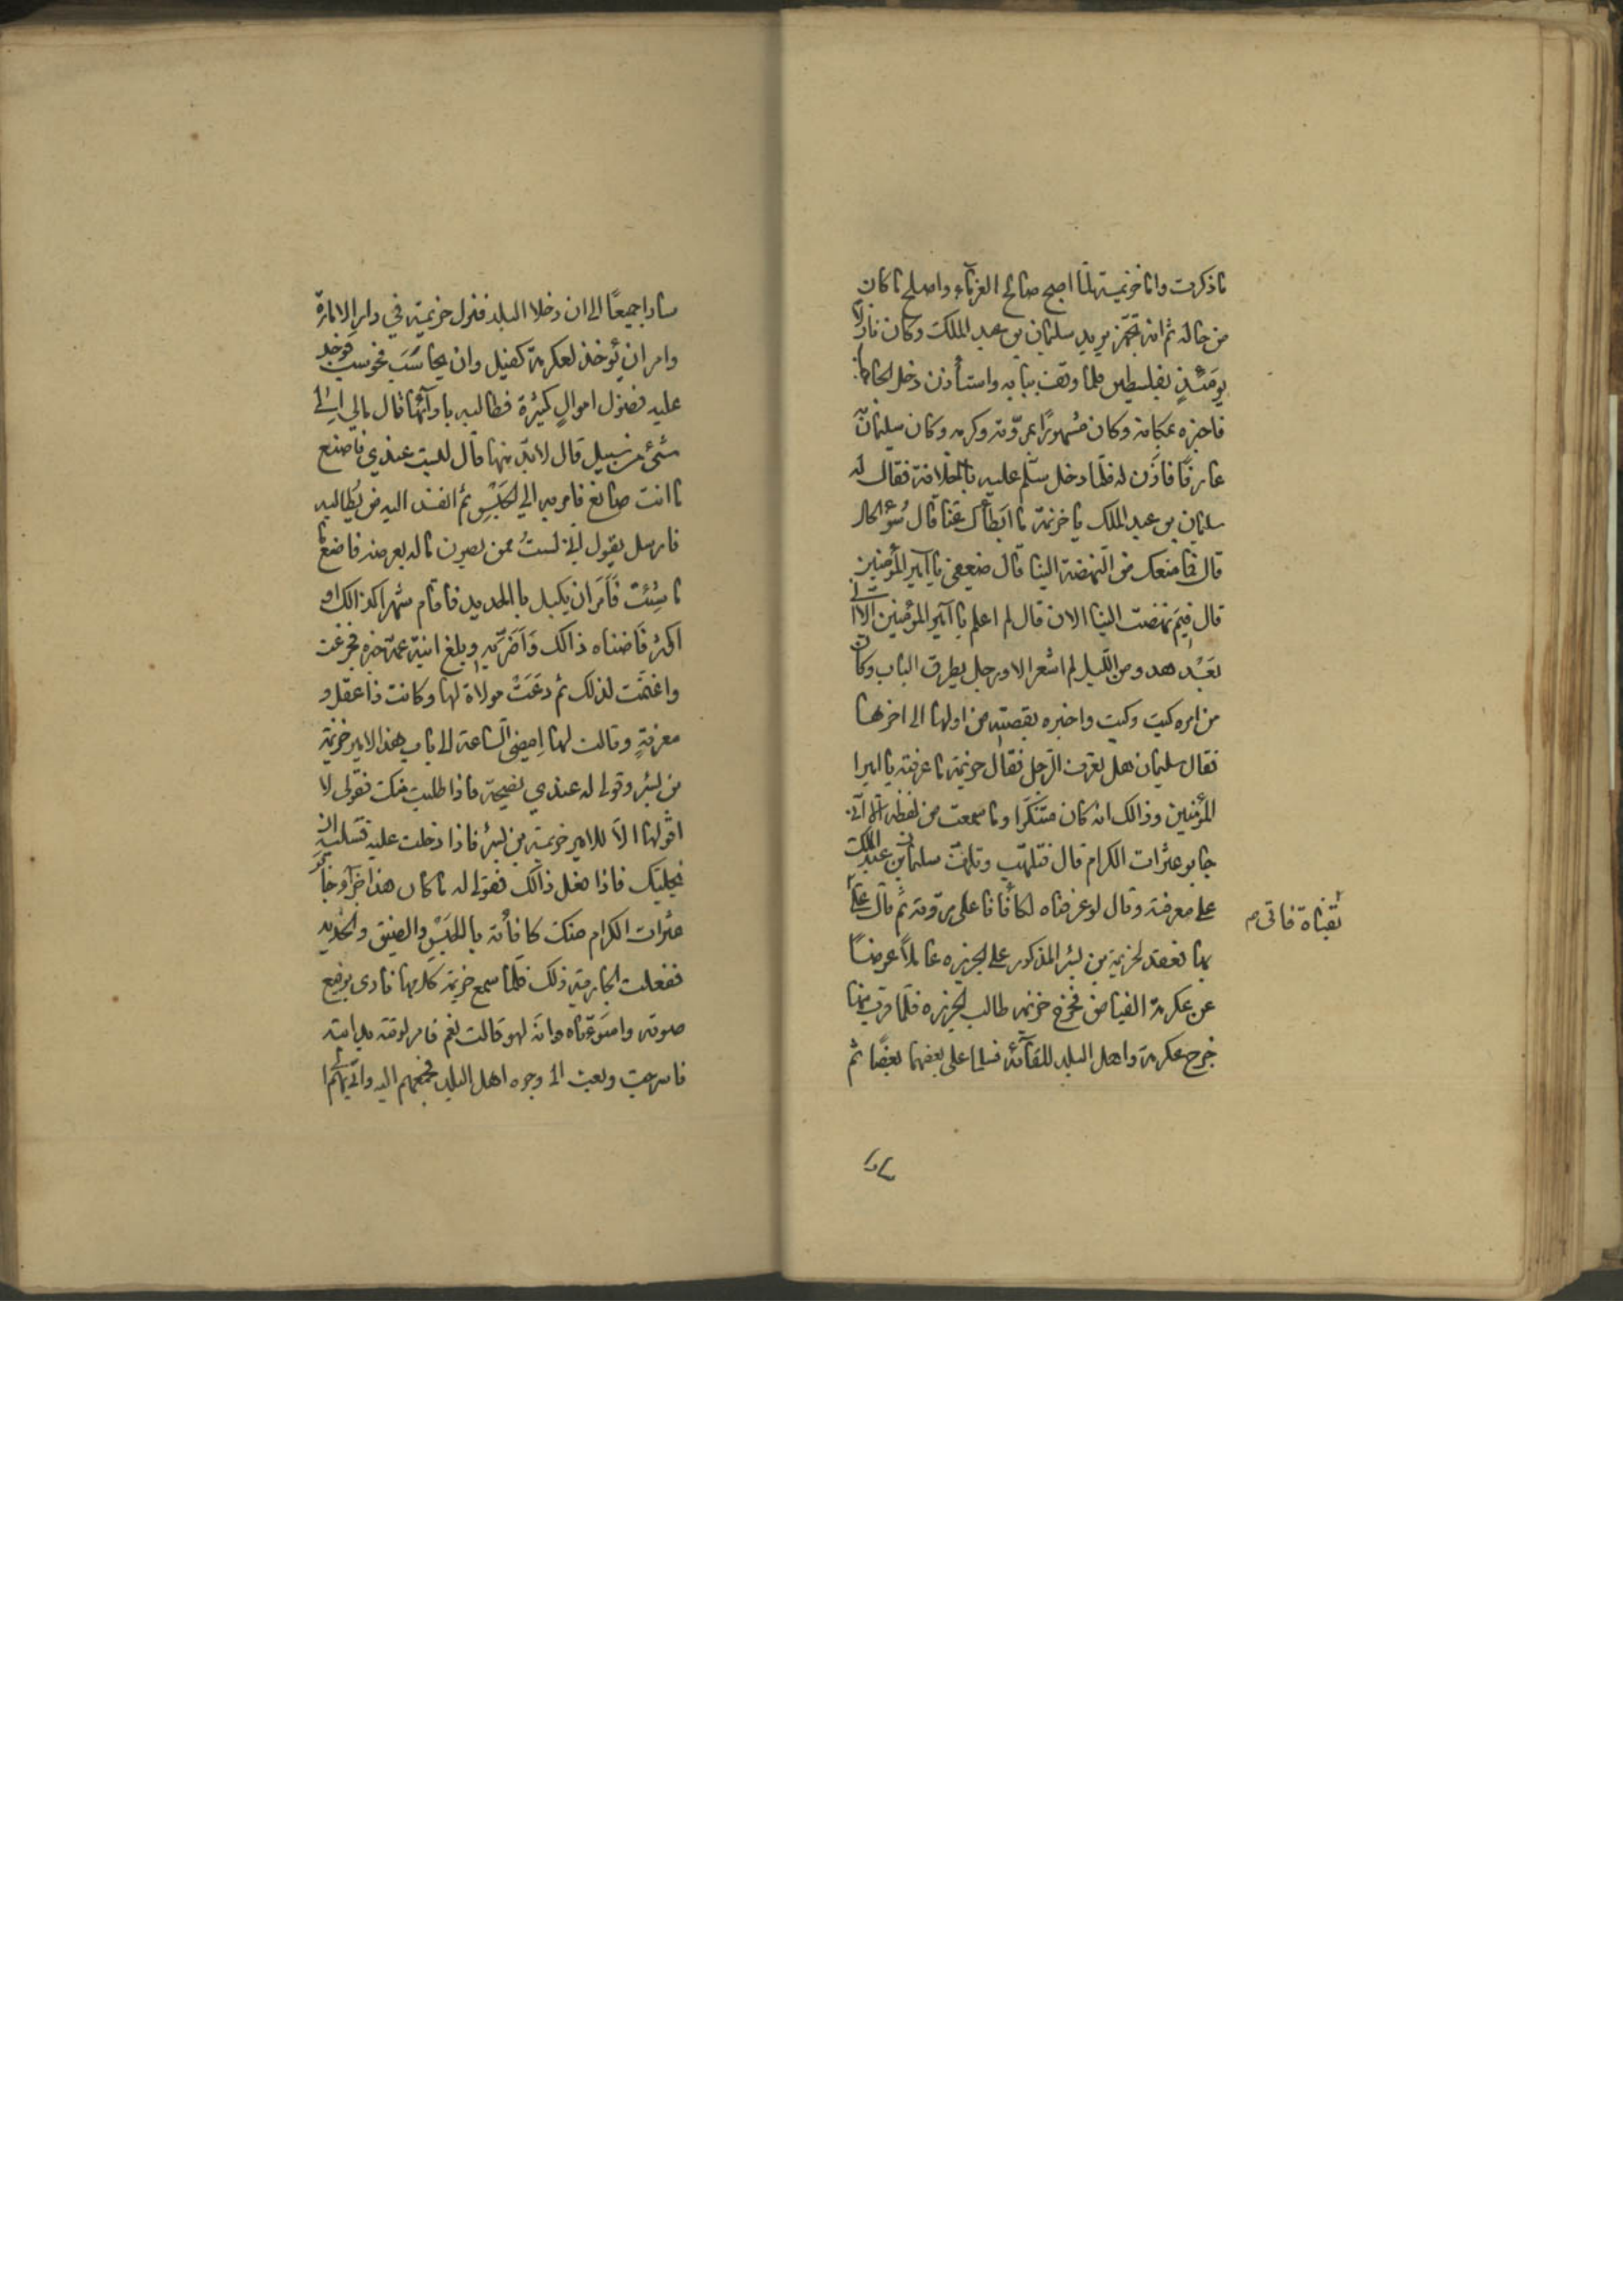 ما ذكرت واما خزيمة لما اصبح صالح الغرماء واصلح ما كان
من حاله ثم انه تجهز يريد سليمان بن عبد الملك وكان نازلا
يومئذٍ بفلسطين فلما وقف ببابه واستأذن دخل الحاجب
فاخبره بمكانه وكان مشهورًا بمروّته وكرمه وكان سليمان به
عارفًا فاذن له فلمّا دخل سلّم عليه بالخلافة فقال له
سليمان بن عبد الملك يا خزيمة ما ابطأك عنّا قال سُوء الحال
قال فما منعك من النهضة الينا قال ضعفي يا امير المؤمنين
قال فيمَ نهضت الينا الان قال لم اعلم يا امير المؤمنين الا اني
بَعْد هدو من الليل لم اشعر الا ورجل يطرق الباب وكان
من امره كيت وكيت واخبره بقصته من اولها الى اخرها
فقال سليمان هل تعرف الرجل فقال خزيمة ما عرفته يا امير ا
المؤمنين وذالك انه كان متنكّرا وما سمعت من لفظه الا اني
جابر عثرات الكرام قال فتلهّب وتلهّف سليمان بن عبد الملك
على معرفته وقال لو عرفناه لكافأناه على مروّته ثم قال عليّ
بقناة فاتي م
بها فعقد لخزيمة بن بشر المذكور على الجزيره عاملاً عوضًا
عن عكرمة الفياض فخرج خزيمه طالب الجزيره فلمّا قرب منها
خرج عكرمة واهل البلد للقآئه فسلما على بعضهما بعضًا ثم
سارا
سارا جميعًا الى ان دخلا البلد فنزل خزيمة في دار الامارة
وامر ان يُوخذ لعكرمة كفيل وان يحاسَب فحوسب فوجد
عليه فضول اموالٍ كثيرة فطالبه بادآئها قال مالي الى
شيء من سبيل قال لابد منها قال ليست عندي فاصنع
ما انت صانع فامر به الى الحَبْسِ ثم انفذ اليه من يُطالبه
فارسل يقول اني لستُ ممن يصون ماله بعرضه فاصنع
ما شِئت فَاَمَر ان يكبل بالحديد فاقام شهرا كذالك او
اكثر فاضناه ذالك وَاَضَرّ به وبلغ ابنة عمه خبره فجزعت
واغتمّت لذلك ثم دَعَتْ مولاة لها وكانت ذا عقل و
معرفةٍ وقالت لها اِمضي السّاعة الى باب هذا الامير خزيمة
بن بشر وقولي له عندي نصيحة فاذا طلبت منك فقولي لا
اقولها الاّ للامير خزيمة بن بشر فاذا دخلت عليه فسليه ان
يخليك فاذا فعل ذالك فقولي له ما كان هذا جزآؤ جابر
عثرات الكرام منك كافأته بالحَبْسِ والضيق والحديد
ففعلت الجارية ذلك فلما سمع خزيمة كلامها نادى برفيع
صوته واسَوءتاه وانّه لهو قالت نعم فامر لوقته بدابته
فاسرجت وبعث الى وجوه اهل البلد فجمعهم اليه واتى بهم ا